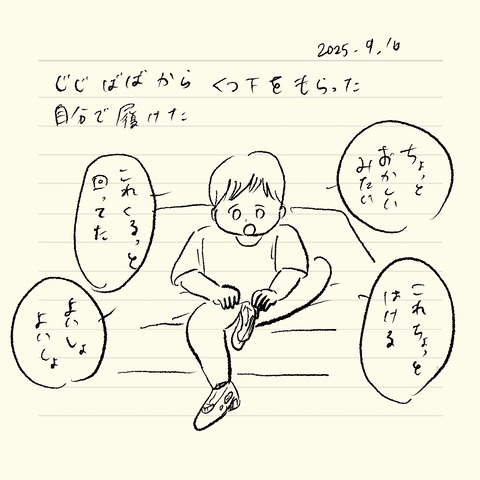 2025.9.16
じじばばから くつ下をもらった
自分で履けた
ちょっと
おかしい
みたい
これくるっと
回ってた
これちょっと
はける
よいしょ
よいしょ